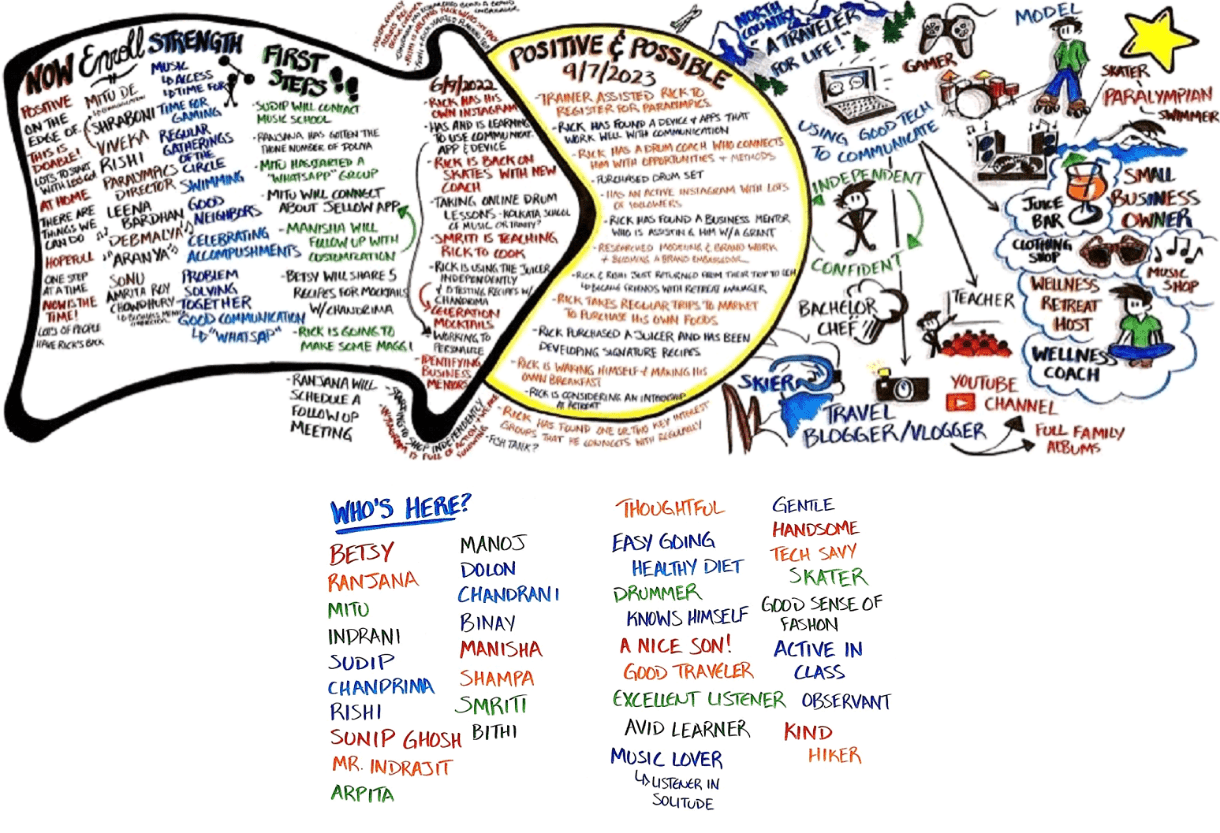 NOW
POSITIVE
ON THE
EDGE OF.
THIS IS
DOABLE!
LOTS TO START
WITH
AT HOME
THERE ARE
THINGS WE
CAN DO
HOPEFULL
ONE STEP
AT A TIME
NOW IS THE
TIME!
LOTS OF PEOPLE
HAVE RICK'S BACK
Enroll
MITU DE
SHRABONI
VIVEKA
RISHI
PARALYMPICS
DIRECTOR
LEENA
BARDHAN
DEBMALYA
"ARANYA"
SONU
AMRITA ROY
CHOWDHURY
STRENGTH
MUSIC
↳ ACCESS
↳ TIME FOR
TIME FOR
GAMING
REGULAR
GATHERINGS
OF THE
CIRCLE
SWIMMING
GOOD
NEIGHBORS
CELEBRATING
ACCOMPUSHMENTS
PROBLEM
SOLVING
TOGETHER
GOOD COMMUNICATION
↳ "WHATSAP"
FIRST
STEPS!!
- SUDIP WILL CONTACT
MUSIC SCHOOL
- RANJANA HAS GOTTEN THE
PHONE NUMBER OF
- MITU HAS STARTED A
"WHATSAPP" GROUP
- MITU WILL CONNECT
ABOUT JELLOW APP
- MANISHA WILL
FOLLOW UP WITH
CUSTOMIZATION
- BETSY WILL SHARE 5
RECIPES FOR MOCKTAILS
W/CHANDRIMA
- RICK IS GOING TO
MAKE SOME MAGGI
- RANJANA WILL
SCHEDULE A
FOLLOW UP
MEETING
6/9/2022
- RICK HAS HIS
OWN INSTAGRAM
- HAS AND IS LEARNING
TO USE COMMUNICAT.
APP & DEVICE
- RICK IS BACK ON
SKATES WITH NEW
COACH
- TAKING ONLINE DRUM
LESSONS - KOLKATA SCHOOL
OF MUSIC OR TRINITY?
- SMRITI IS TEACHING
RICK TO COOK
- RICK IS USING THE JUICER
INDEPENDENTLY
& TESTING RECIPES W/
CHANDRIMA
CELERATION
MOCKTAILS
↳ WORKING TO
PERSONALIZE
- IDENTIFYING
BUSINESS
MENTORS
POSITIVE & POSSIBLE
9/7/2023
- TRAINER ASSISTED RICK TO
REGISTER FOR PARALYMPICS
- RICK HAS FOUND A DEVICE & APPS THAT
WORK WELL WITH COMMUNICATION
- RICK HAS A DRUM COACH WHO CONNECTS
HIM WITH OPPORTUNITIES + METHODS
- PURCHASED DRUM SET
- HAS AN ACTIVE INSTAGRAM WITH LOTS
OF FOLLOWERS
- RICK HAS FOUND A BUSINESS MENTOR
WHO IS ASSISTING HIM W/A GRANT
- RESEARCHED MODELING & BRAND WORK
+ BECOMING A BRAND EMBASSADOR
- RICK & RISHI JUST RETURNED FROM THEIR TRIP TO
↳ BECAME FRIENDS WITH RETREAT MANAGER
- RICK TAKES REGULAR TRIPS TO MARKET
TO PURCHASE HIS OWN FOODS
- RICK PURCHASED A JUICER AND HAS BEEN
DEVELOPING SIGNATURE RECIPES
- RICK IS WAKING HIMSELF + MAKING HIS
OWN BREAKFAST
- RICK IS CONSIDERING AN INTERNSHIP
AT RETREAT
- RICK HAS FOUND ONE OR TWO KEY INTEREST
GROUPS THAT HE CONNECTS WITH REGULARLY
- FISH TANK?
NORTH
COUNTRY
"A TRAVELER
FOR LIFE!"
GAMER
MODEL
SKATER
PARALYMPIAN
SWIMMER
USING GOOD TECH
TO COMMUNICATE
INDEPENDENT
CONFIDENT
JUICE
BAR
SMALL
BUSINESS
OWNER
CLOTHING
SHOP
MUSIC
SHOP
WELLNESS
RETREAT
HOST
WELLNESS
COACH
BACHELOR
CHEF
TEACHER
SKIER
TRAVEL
BLOGGER/VLOGGER
YOUTUBE
CHANNEL
FULL FAMILY
ALBUMS
WHO'S HERE?
BETSY
RANJANA
MITU
INDRANI
SUDIP
CHANDRIMA
RISHI
SUNIP GHOSH
MR. INDRAJIT
ARPITA
MANOJ
DOLON
CHANDRANI
BINAY
MANISHA
SHAMPA
SMRITI
BITHI
THOUGHTFUL
EASY GOING
HEALTHY DIET
DRUMMER
KNOWS HIMSELF
A NICE SON!
GOOD TRAVELER
EXCELLENT LISTENER
AVID LEARNER
MUSIC LOVER
↳ LISTENER IN
SOLITUDE
GENTLE
HANDSOME
TECH SAVY
SKATER
GOOD SENSE OF
FASHON
ACTIVE IN
CLASS
OBSERVANT
KIND
HIKER